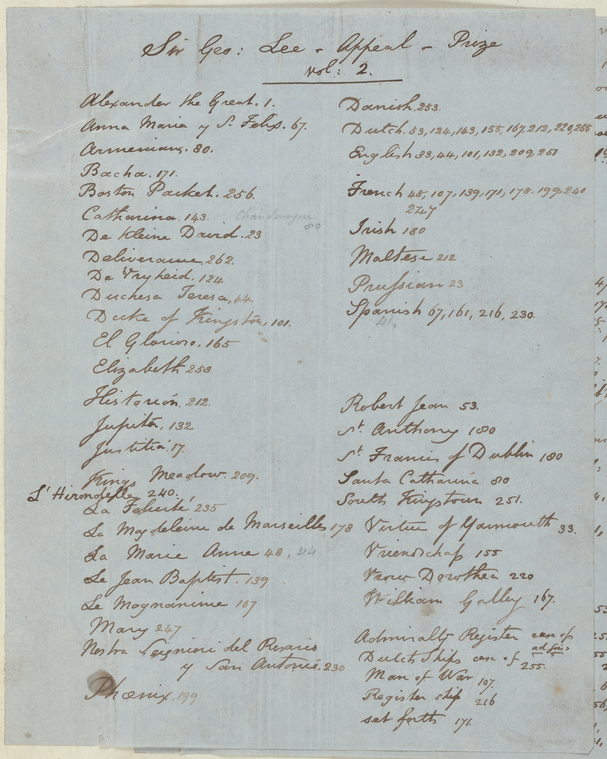 Sir Geo: Lee - Appeal - Prize
vol: 2.
Alexander the Great. 1.
Anna Maria y St Felix. 67.
Armenians. 80.
Bacha. 171.
Boston Packet. 256.
Catharina. 143.
De Kleine David. 23
Deliverance 262.
De Vryheid. 124
Duchesa Teresa, 44.
Duke of Kingston, 101.
El Glorioso. 165
Elizabeth 253
Historien, 212.
Jupiter, 132
Justitia 17.
Kings Meadow. 209.
L'Hirondelle 240.
La Felicité, 235
La Magdeleine de Marseilles, 178
La Marie Anne 48, 44
Le Jean Baptist. 139
Le Magnanime 107
Mary 247
Nostra Seigniora del Rosario
y San Antonio. 230
Phœnix, 199.
Danish. 253.
Dutch. 53, 124, 143, 155, 167, 212, 220, 255
English 33, 44, 101, 132, 209, 251
French 48, 107, 139, 171, 178. 199, 240
247
Irish 180
Maltese 212
Prussian 23
Spanish 67, 161, 216, 230.
Robert Jean 53.
St. Anthony 180
St. Francis of Dublin 180
Santa Catharina 80
South Kingston 251.
Virtue of Yarmouth 33.
Vriendschap 155
Vrow Dorothea 220
William Galley 167.
Admiralty Register case of
Dutch Ships case of 255.
Man of War 107
Register ship 216
set forth 171